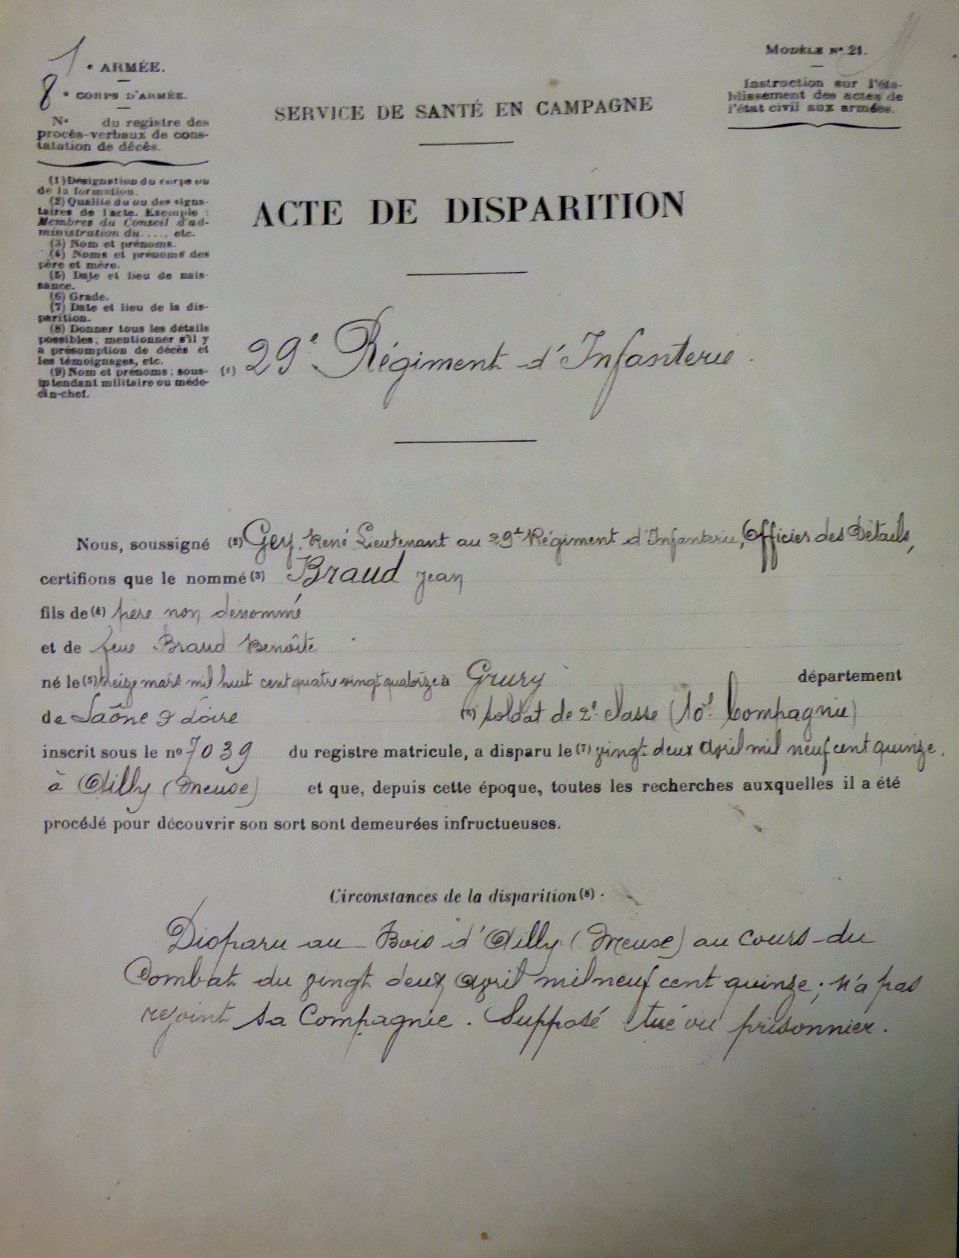 1ᵉ ARMÉE.
8ᵉ CORPS D'ARMÉE.
Nº du registre des
procès-verbaux de cons-
tatation de décès.
(1) Désignation du corps ou
de la formation.
(2) Qualité du ou des signa-
taires de l'acte. Exemple :
Membres du Conseil d'ad-
ministration du ...., etc.
(3) Nom et prénoms.
(4) Noms et prénoms des
père et mère.
(5) Date et lieu de nais-
sance.
(6) Grade.
(7) Date et lieu de la dis-
parition.
(8) Donner tous les détails
possibles; mentionner s'il y
a présomption de décès et
les témoignages, etc.
(9) Nom et prénoms; sous-
intendant militaire ou méde-
cin-chef.
MODÈLE Nº 21.
Instruction sur l'éta-
blissement des actes de
l'état civil aux armées.
SERVICE DE SANTÉ EN CAMPAGNE
ACTE DE DISPARITION
(1) 29ᵉ Régiment d'Infanterie.
Nous, soussigné (2) Gey, René, Lieutenant au 29ᵉ Régiment d'Infanterie, Officier des Détails,
certifions que le nommé (3) Braud Jean
fils de (4) père non dénommé
et de feue Braud Benoîte
né le (5) treize mars mil huit cent quatre vingt quatorze à Grury département
de Saône & Loire (6) soldat de 2ᵉ classe (10ᵉ Compagnie)
inscrit sous le nº 7039 du registre matricule, a disparu le (7) vingt-deux avril mil neuf cent quinze,
à Ailly (Meuse) et que, depuis cette époque, toutes les recherches auxquelles il a été
procédé pour découvrir son sort sont demeurées infructueuses.
Circonstances de la disparition (8) :
Disparu au Bois d'Ailly (Meuse) au cours du
Combat du vingt deux avril mil neuf cent quinze; n'a pas
rejoint sa Compagnie. Supposé tué ou prisonnier.